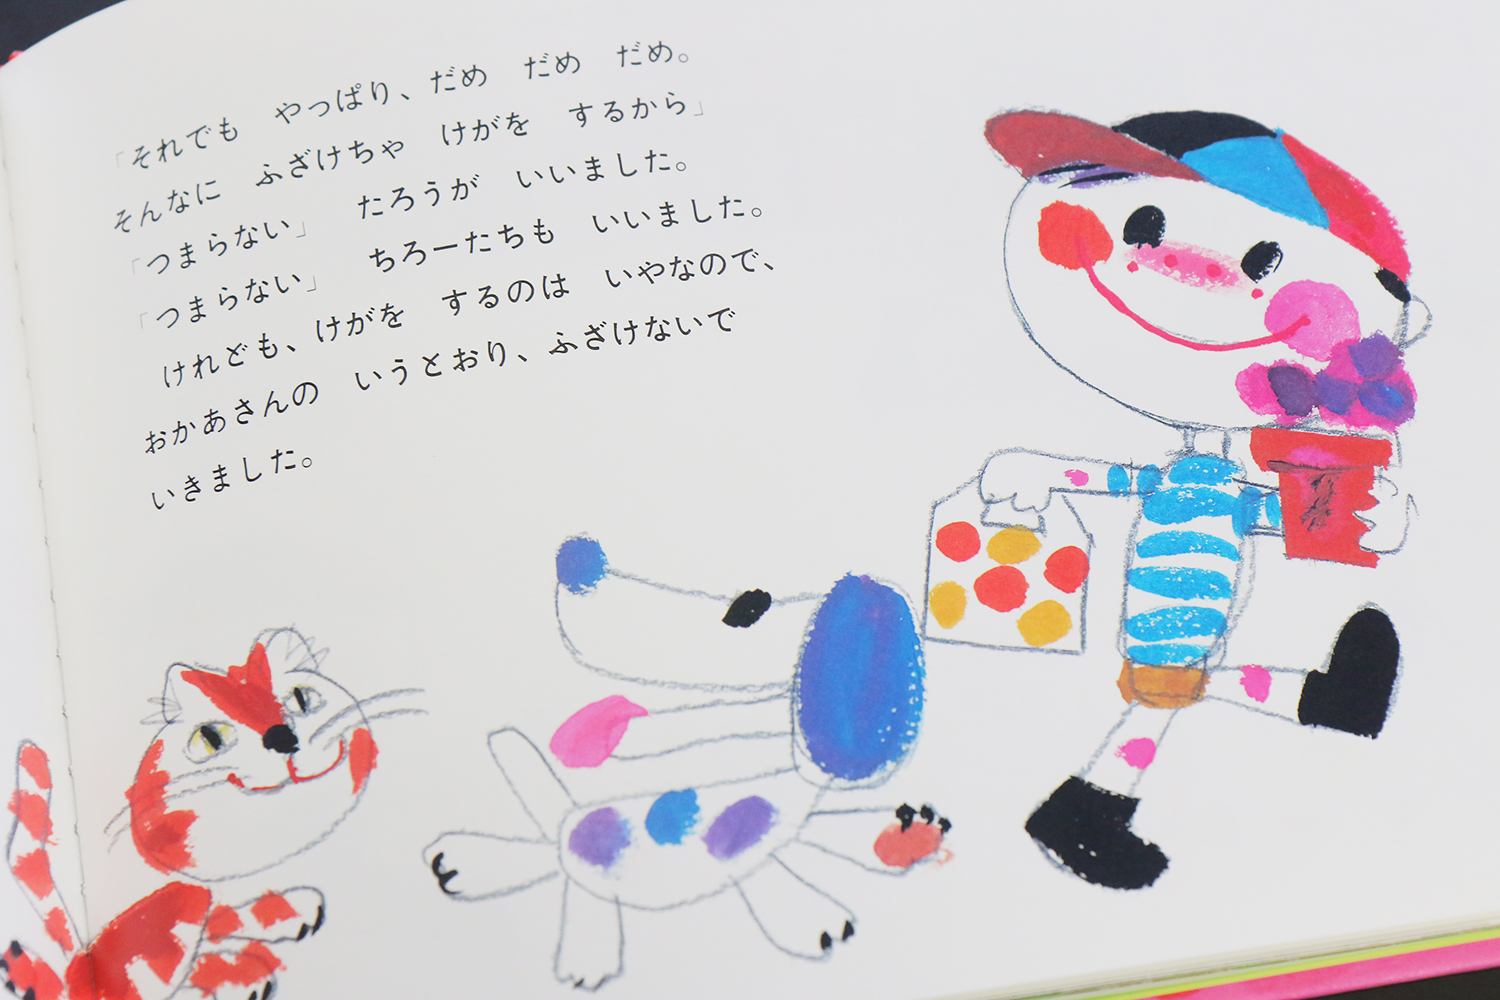 「それでも　やっぱり、だめ　だめ　だめ。
そんなに　ふざけちゃ　けがを　するから」
「つまらない」　たろうが　いいました。
「つまらない」　ちろーたちも　いいました。
けれども、けがを　するのは　いやなので、
おかあさんの　いうとおり、ふざけないで
いきました。